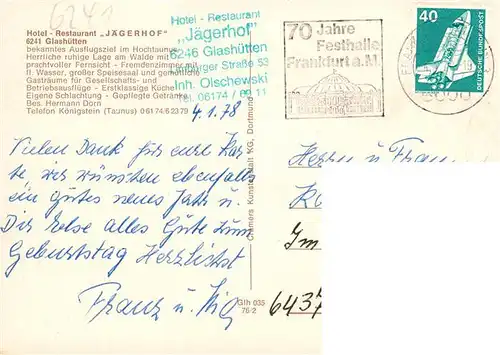 6241
Hotel - Restaurant „JÄGERHOF"
6241 Glashütten
bekanntes Ausflugsziel im Hochtaunus
Herrliche ruhige Lage am Walde mit
prachtvoller Fernsicht - Fremdenzimmer mit
fl. Wasser, großer Speisesaal und gemütliche
Gasträume für Gesellschafts- und
Betriebsausflüge - Erstklassige Küche
Eigene Schlachtung - Gepflegte Getränke
Bes. Hermann Dorn
Telefon Königstein (Taunus) 06174/62379
Hotel - Restaurant
„Jägerhof"
6246 Glashütten
Straße 53
Inh. Olschewski
Tel. 06174 / 11
4.1.78
Vielen Dank für eure Kar
te, wir wünschen ebenfalls
ein gutes neues Jahr u.
Dir Else alles Gute zum
Geburtstag Herzlichst
Franz u.
Cramers Kunstanstalt KG, Dortmund
Glh 035
76/2
70 Jahre
Festhalle
Frankfurt a.M.
40
Herrn u Frau
Im
6437